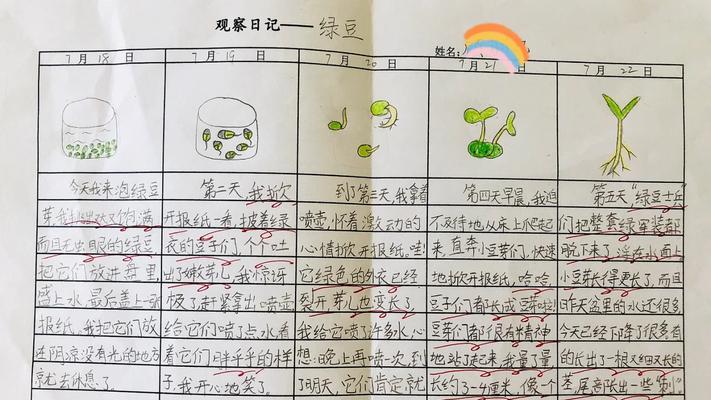 观察日记——绿豆
姓名:
7月18日
今天我来泡绿豆
芽我挑出大又饱满
而且无虫眼的绿豆
把它们放进盆里
盛上水,最后盖上一张
报纸,我把它们放
在阴凉没有光的地方
就去休息了。
7月19日
第二天,我掀
开报纸一看,披着绿
衣的豆子们个个吐
出了嫩芽儿,我惊讶
极了赶紧拿出喷壶
给它们喷了点水看
着它们胖乎乎的样
子,我开心地笑了。
7月20日
到了第三天,我拿着
喷壶,怀着激动的
心情掀开报纸。哇!
它绿色的外衣已经
裂开芽儿也变长了,
我给它喷了许多水,心
想:晚上再喷一次,到
了明天,它们肯定就
7月21日
第四天早晨,我迫
不及待地从床上爬起
来,直奔小豆芽们,快速
地掀开报纸,哈哈,
豆子们都长成豆芽啦!
豆芽们都很有精神
地站了起来,我量了量,
长约了3-4厘米,像个
7月22日
第五天“绿豆士兵”
们把整套绿军装都
脱下来了,浮在水面上
小豆芽长得更长了,而且
昨天盆里的水还很多,
今天已经下降了很多有
的长出了一根又细又长的
茎,尾部长出一些“刺”